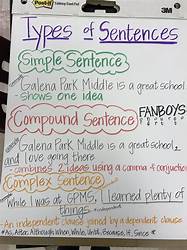 Post-it
3M
Types of Sentences
Simple Sentence
Galena Park Middle is a great school
- shows one idea
Compound Sentence
FANBOYS
Galena Park Middle is a great school,
and I love going there
- combines 2 ideas using a comma & conjunction
Complex Sentence
While I was at GPMS, I learned plenty of
things.
- An independent clause joined by a dependent clause.
*As, After, Although, When, While, Until, Because, If, Since*